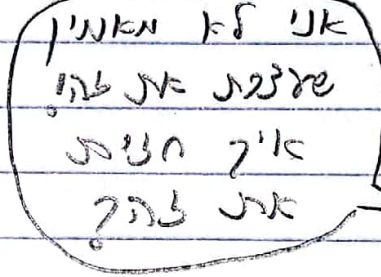 אני לא מאמין
שעזבת את זה!
איך חנית
את זה?